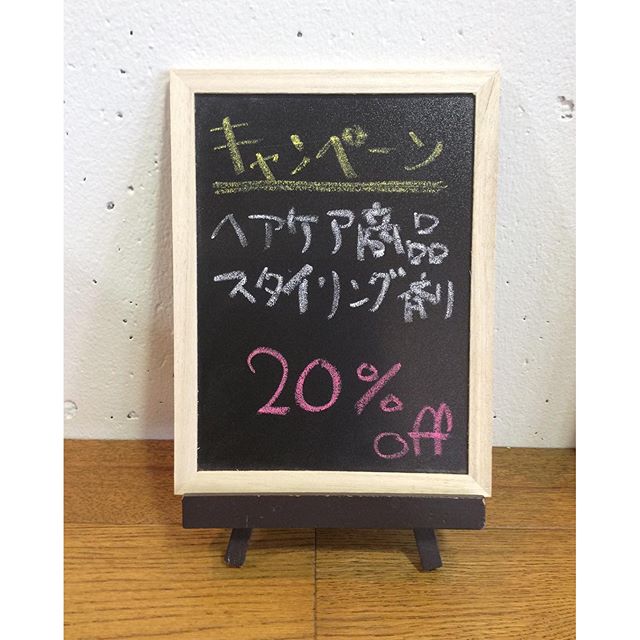 キャンペーン
ヘアケア商品
スタイリング剤
20%
off